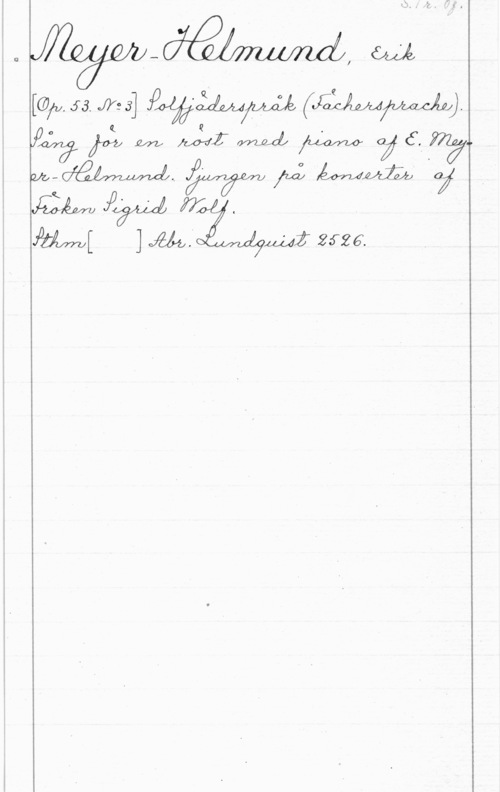 S. 1 r. Öf.
Meyer-Helmund, Erik
[Op. 53. No 3] Solfjäderspråk (Fächersprache).
Sång för en röst med piano af E. Mey-
er-Helmund. Sjungen på konserter af
Fröken Sigrid Wolf.
Sthm[ ] Abr. Lundquist 2526.